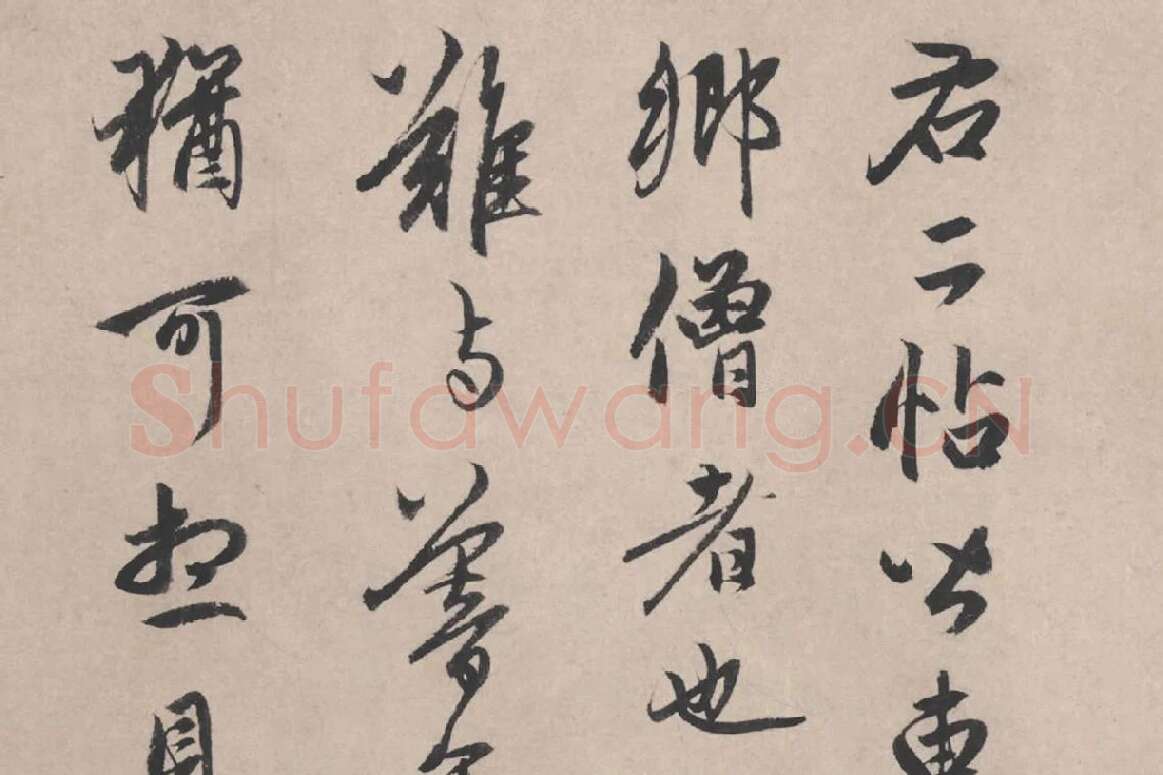 君二帖皆東
鄉僧者也
雖与蕃
猶可想見
Shufawang.CN